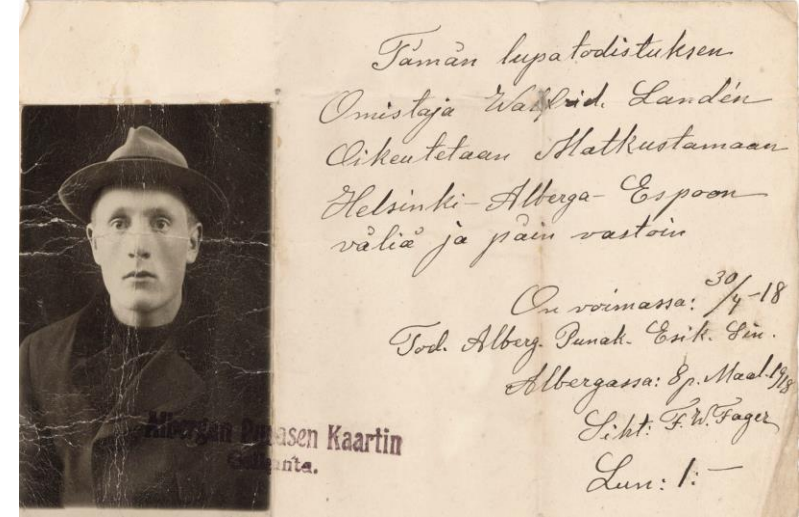 Tämän lupatodistuksen
Omistaja Walfrid. Landén
Oikeutetaan Matkustamaan
Helsinki-Alberga-Espoon
väliä ja päin vastoin
On voimassa: 30/4-18
Tod. Alberg. Punak. Esik. Sin.
Albergassa: 8 p. Maal. 1918
Siht: F.W. Fager
Lun: 1:-
Albergan Punasen Kaartin